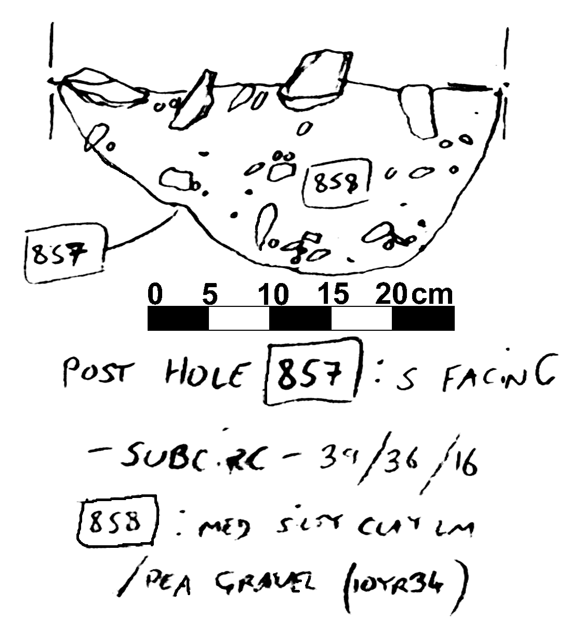 858
857
0 5 10 15 20cm
POST HOLE 857 : S FACING
- SUBCIRC - 39/36/16
858 : MED SILTY CLAY LM
/PEA GRAVEL (10YR34)